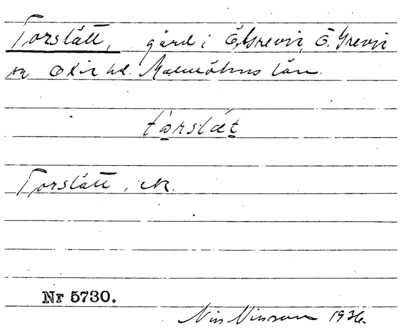 Torslätt, gård i Ö. Grevie, Ö. Grevie
sn Oxie hd. Malmöhus län.
tòrslät
Torslätt, ek.
Nr 5730.
Nils Nilsson 1936.